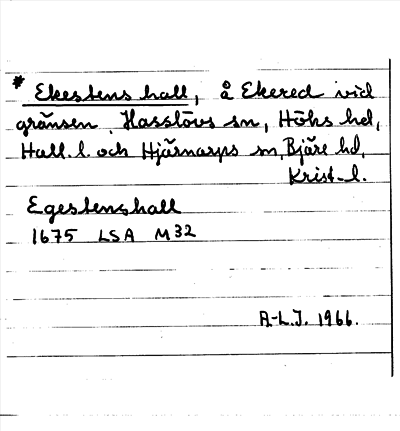 * Ekestens hall, å Ekered vid
gränsen Hasslövs sn, Höks hd,
Hall. l. och Hjärnarps sn, Bjäre hd,
Krist. l.
Egestenshall
1675 LSA M32
A-L.J. 1966.